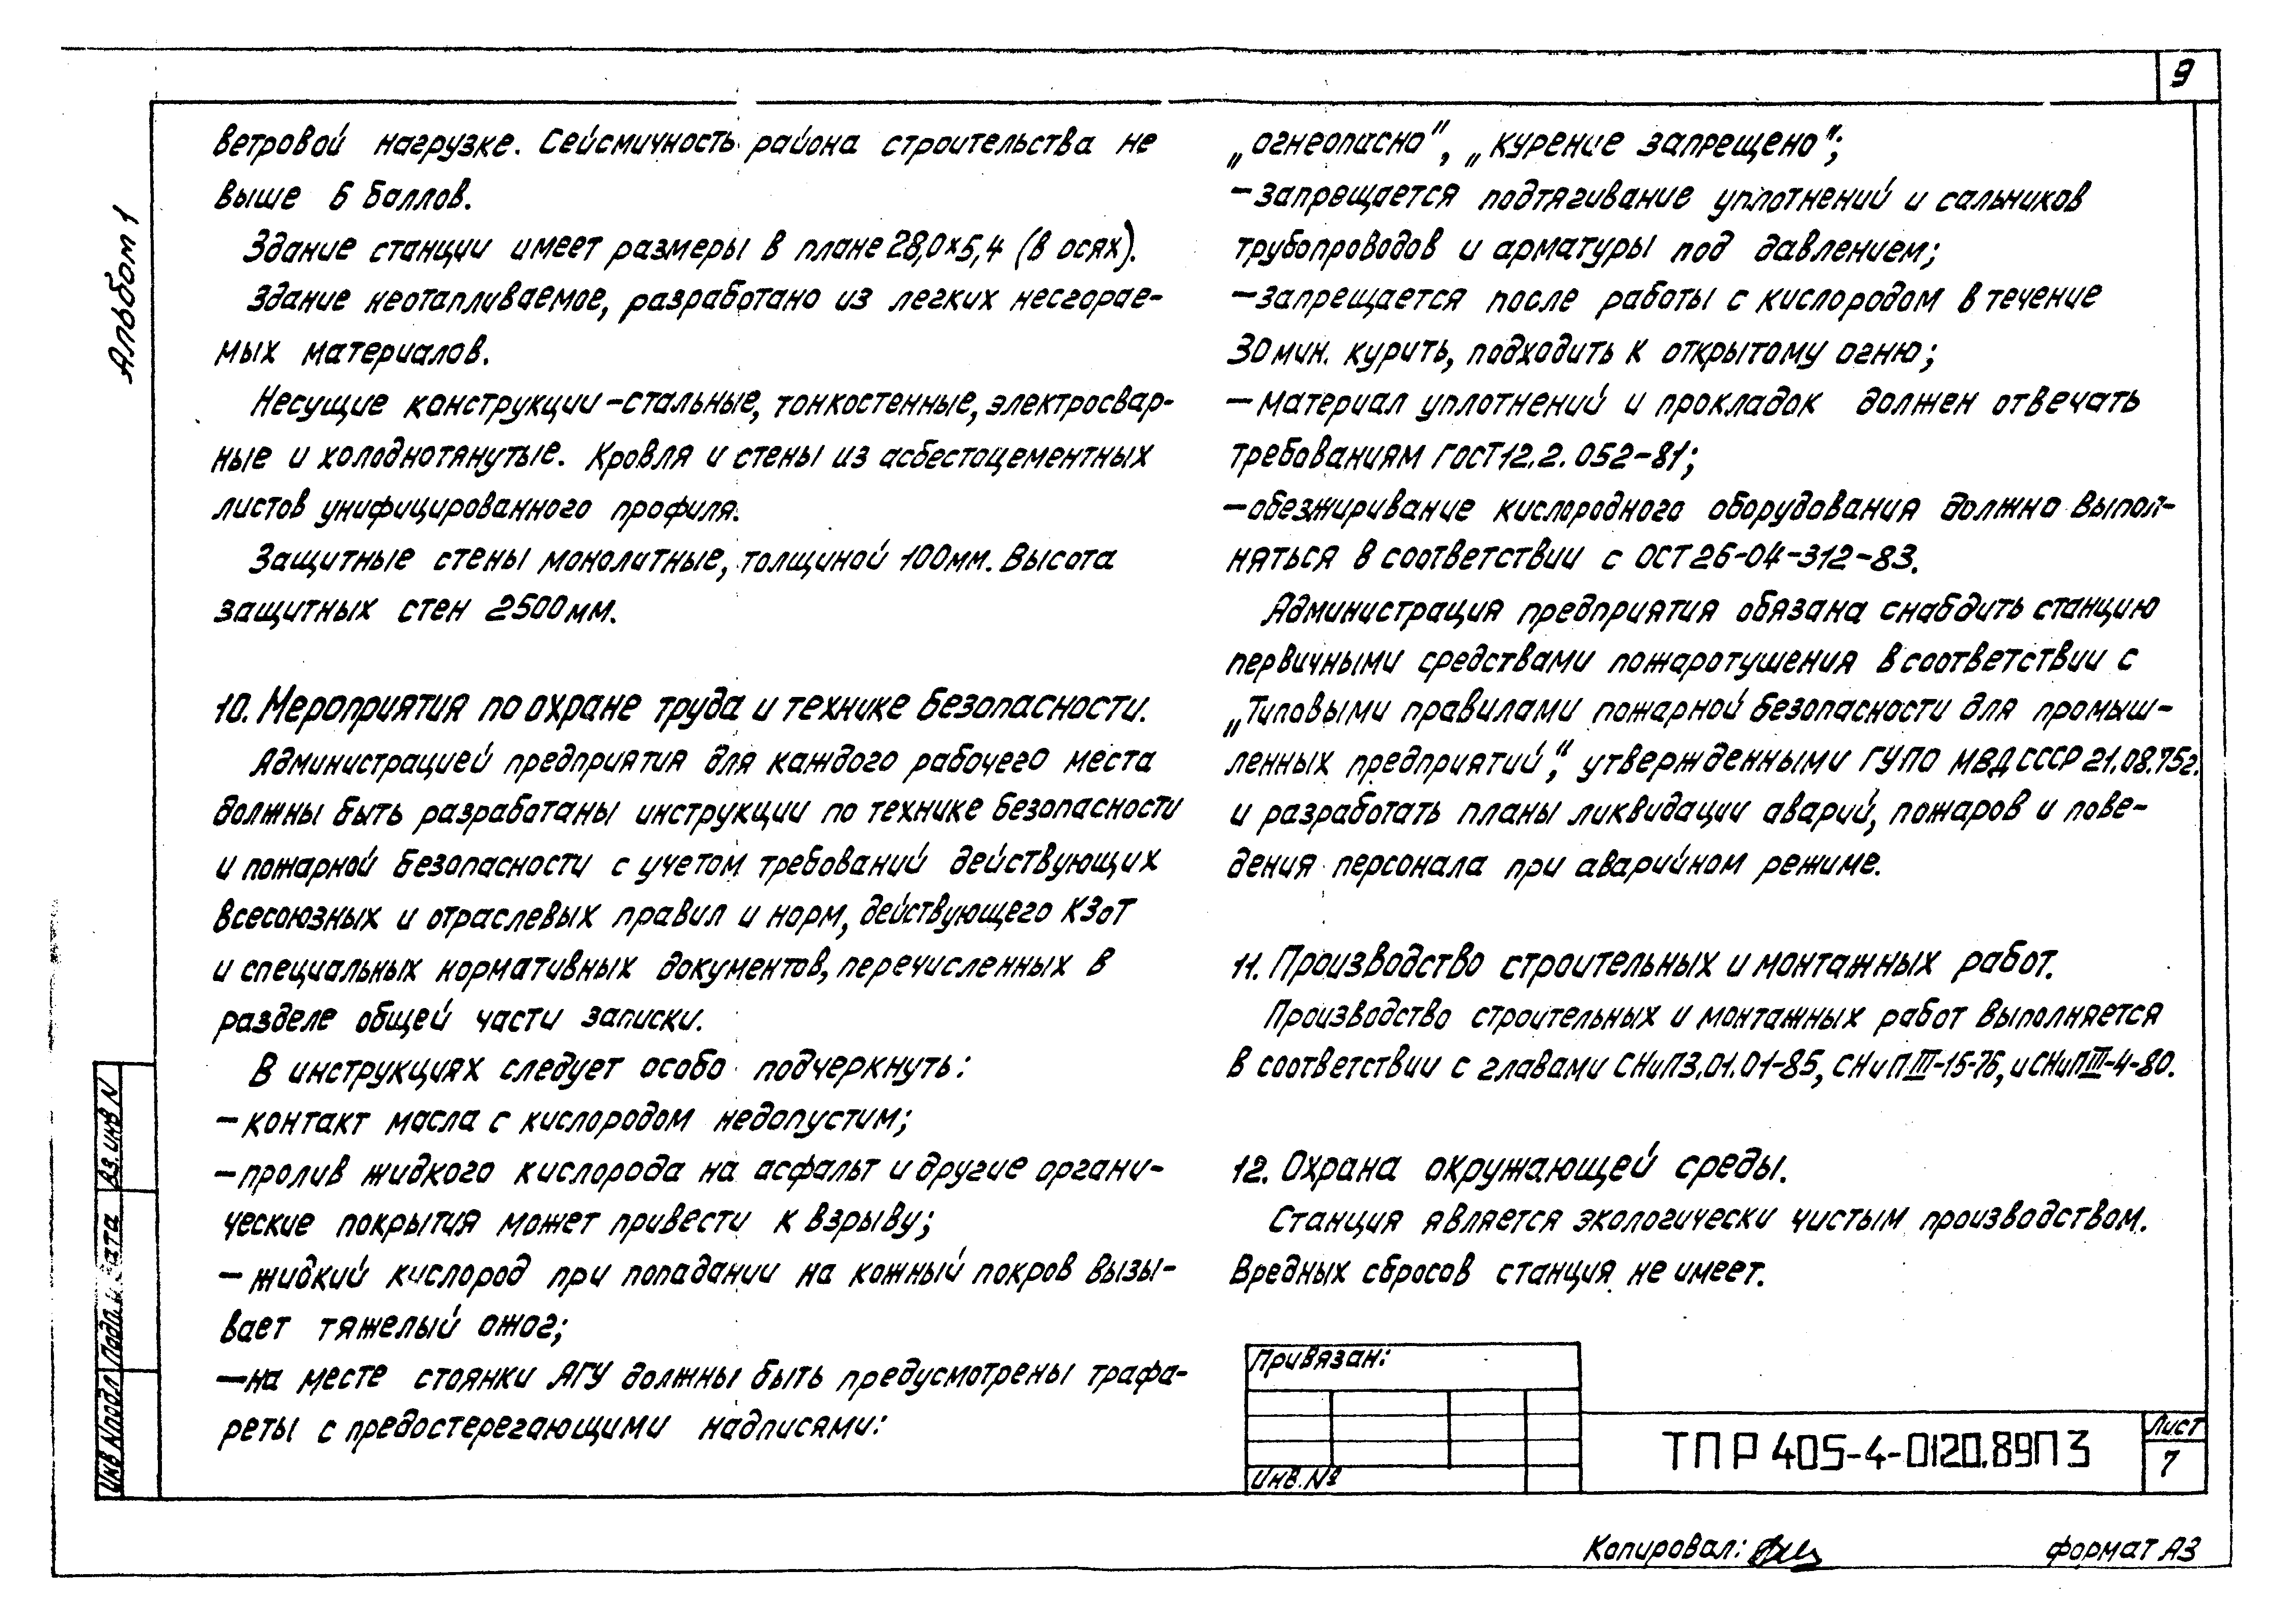 9
Альбом 1
ветровой нагрузке. Сейсмичность района строительства не
выше 6 баллов.
Здание станции имеет размеры в плане 28,0×5,4 (в осях).
Здание неотапливаемое, разработано из легких несгорае-
мых материалов.
Несущие конструкции – стальные, тонкостенные, электросвар-
ные и холоднотянутые. Кровля и стены из асбестоцементных
листов унифицированного профиля.
Защитные стены монолитные, толщиной 100мм. Высота
защитных стен 2500мм.
10. Мероприятия по охране труда и технике безопасности.
Администрацией предприятия для каждого рабочего места
должны быть разработаны инструкции по технике безопасности
и пожарной безопасности с учетом требований действующих
всесоюзных и отраслевых правил и норм, действующего КЗоТ
и специальных нормативных документов, перечисленных в
разделе общей части записки.
В инструкциях следует особо подчеркнуть:
– контакт масла с кислородом недопустим;
– пролив жидкого кислорода на асфальт и другие органи-
ческие покрытия может привести к взрыву;
– жидкий кислород при попадании на кожный покров вызы-
вает тяжелый ожог;
– на месте стоянки АГУ должны быть предусмотрены трафа-
реты с предостерегающими надписями:
„огнеопасно", „курение запрещено";
– запрещается подтягивание уплотнений и сальников
трубопроводов и арматуры под давлением;
– запрещается после работы с кислородом в течение
30мин. курить, подходить к открытому огню;
– материал уплотнений и прокладок должен отвечать
требованиям ГОСТ 12.2.052-81;
– обезжиривание кислородного оборудования должно выпол-
няться в соответствии с ОСТ 26-04-312-83.
Администрация предприятия обязана снабдить станцию
первичными средствами пожаротушения в соответствии с
„Типовыми правилами пожарной безопасности для промыш-
ленных предприятий", утвержденными ГУПО МВД СССР 21.08.75г.
и разработать планы ликвидации аварий, пожаров и пове-
дения персонала при аварийном режиме.
11. Производство строительных и монтажных работ.
Производство строительных и монтажных работ выполняется
в соответствии с главами СНиП 3.01.01-85, СНиП III-15-76, и СНиП III-4-80.
12. Охрана окружающей среды.
Станция является экологически чистым производством.
Вредных сбросов станция не имеет.
Вз. инв N
Подп. и дата
Инв N подл
Привязан:
Инв. №
ТПР 405-4-0120.89ПЗ
Лист
7
Копировал:
формат А3